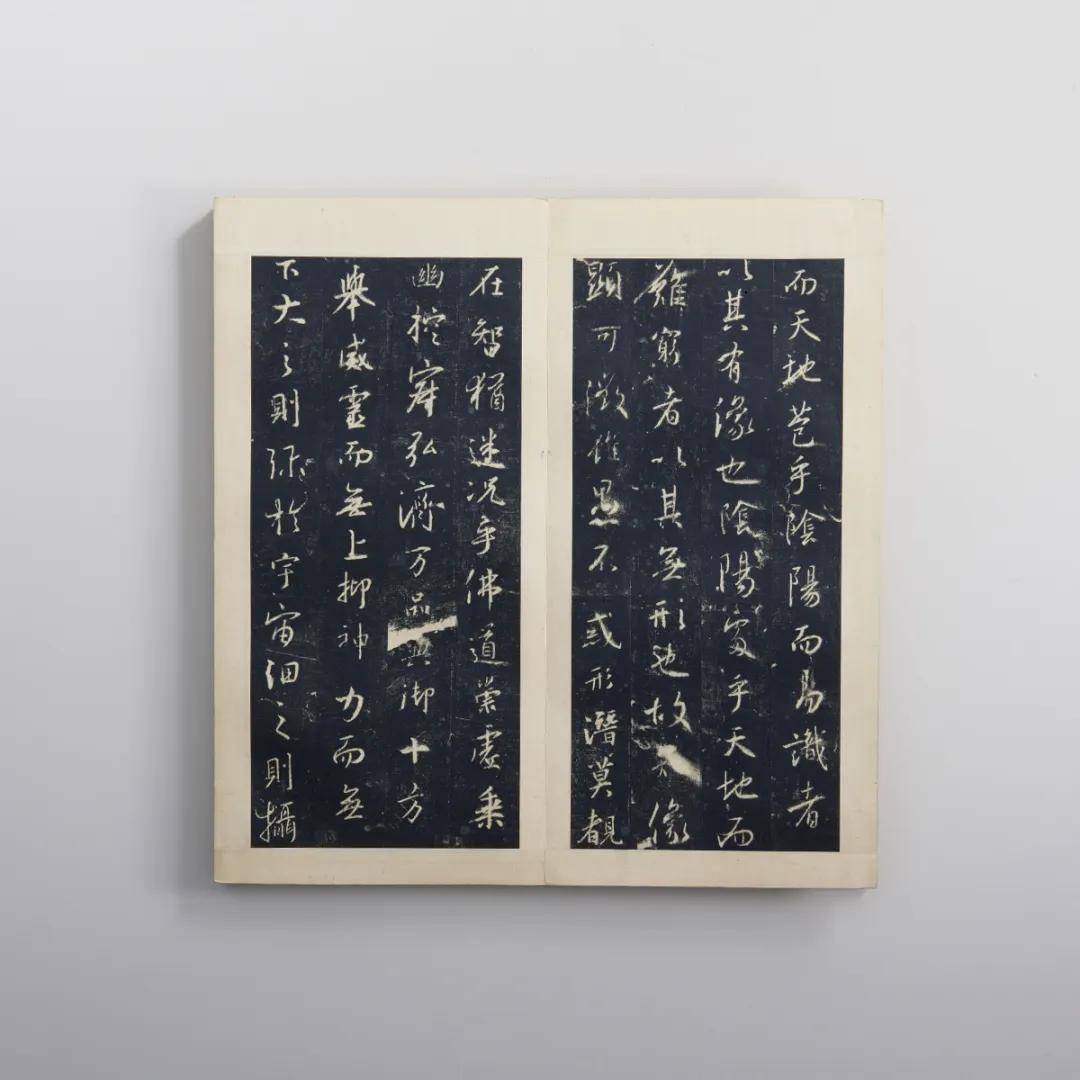 而天地苞乎陰陽而易識者
以其有像也陰陽處乎天地而
難窮者以其無形也故像
顯可徵雖愚不惑形潛莫覩
在智猶迷況乎佛道崇虛乘
幽控寂弘濟万品典御十方
舉威靈而無上抑神力而無
下大之則弥於宇宙細之則攝